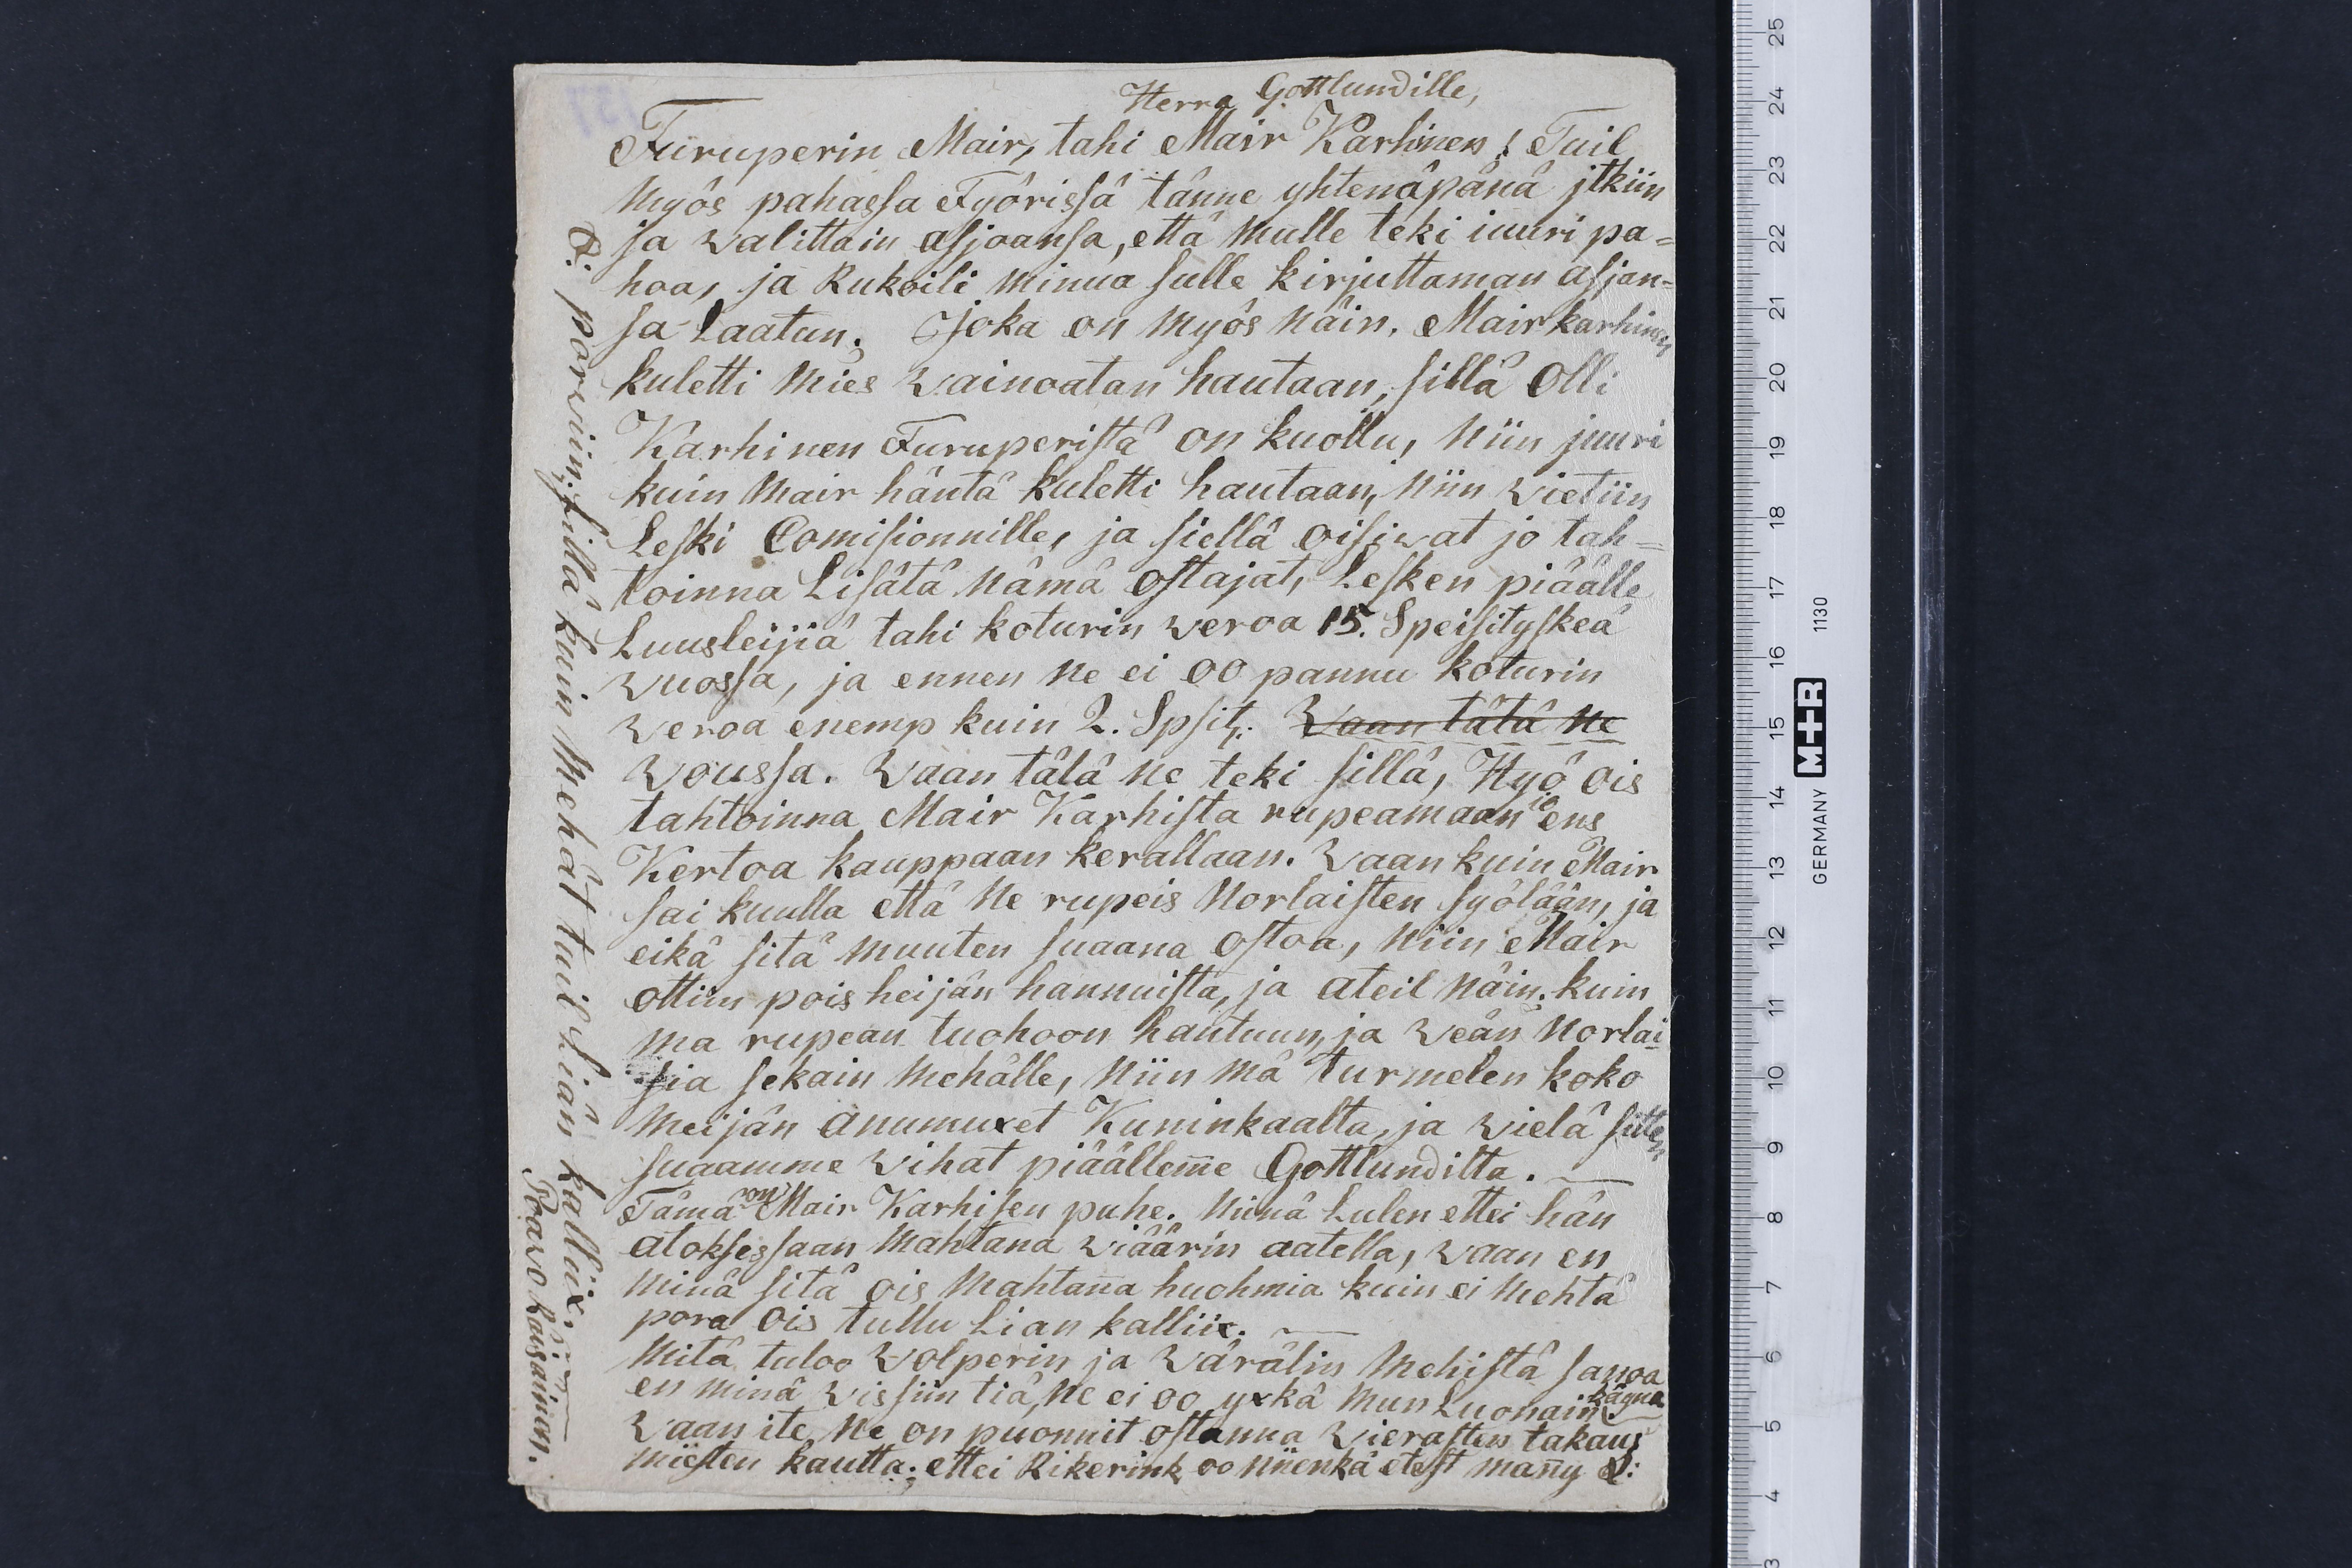 Herra Gottlundille,
Furuperin Mair, tahi Mair Karhinen! Tuil
myös pahassa Työrissä tänne yhtenäpänä jtkiin
ja walittain asjoansa, että mulle teki iuuri pa=
hoa, ja Rukoili minua sulle kirjuttaman asjan=
sa Laatun. Joka on myös näin. Mair karhinen
kuletti mies wainoatan hautaan, sillä Olli
Karhinen Furuperistä on kuollu, niin juuri
kuin Mair häntä kuletti hautaan, niin wietiin
Leski Comisionnille, ja siellä oisiwat jo tah=
toinna Lisätä nämä ostajat, Lesken piäälle
Luusleijiä tahi koturin weroa 15. Speisityskeä
wuossa, ja ennen ne ei oo pannu koturin
weroa enemp kuin 2. Spsit. Waan tätä ne
woussa. Waan tälä ne teki sillä, Hyö ois
tahtoinna Mair Karhista rupeamaan io ens
Kertoa kauppaan kerallaan. Waan kuin Mair
sai kuulla että ne rupeis Norlaisten syölään, ja
eikä sitä muuten suaana ostoa, niin Mair
ottiin pois heijän hannuista, ja ateil näin. kuin
ma rupean tuohoon hautuun, ja weän Norlai
sia sekain mehälle, niin mä turmelen koko
meijän anumuxet Kuninkaalta, ja wielä sitten
suaamme wihat piäällem̄e Gottlundilta.
Tämä on Mair Karhisen puhe. Minä Lulen ettei hän
atoksessaan mahtana wiäärin aatella, waan en
minä sitä ois mahtan̄a huohmia kuin ei mehtä
pora ois tullu Lian kalliix.
Mitä tuloo Wolperin ja Wärälin mehistä sanoa
en minä wissiin tiä, ne ei oo yxkä mun Luonain käynä
waan ite ne on puonnit ostanna wierasten takaus
miesten kautta; ettei Rikerink oo niienkä etest man̄y &:
&: porwiin; sillä kuin Mehät tuil Liän kalliix.
Paawo Räisäinen.